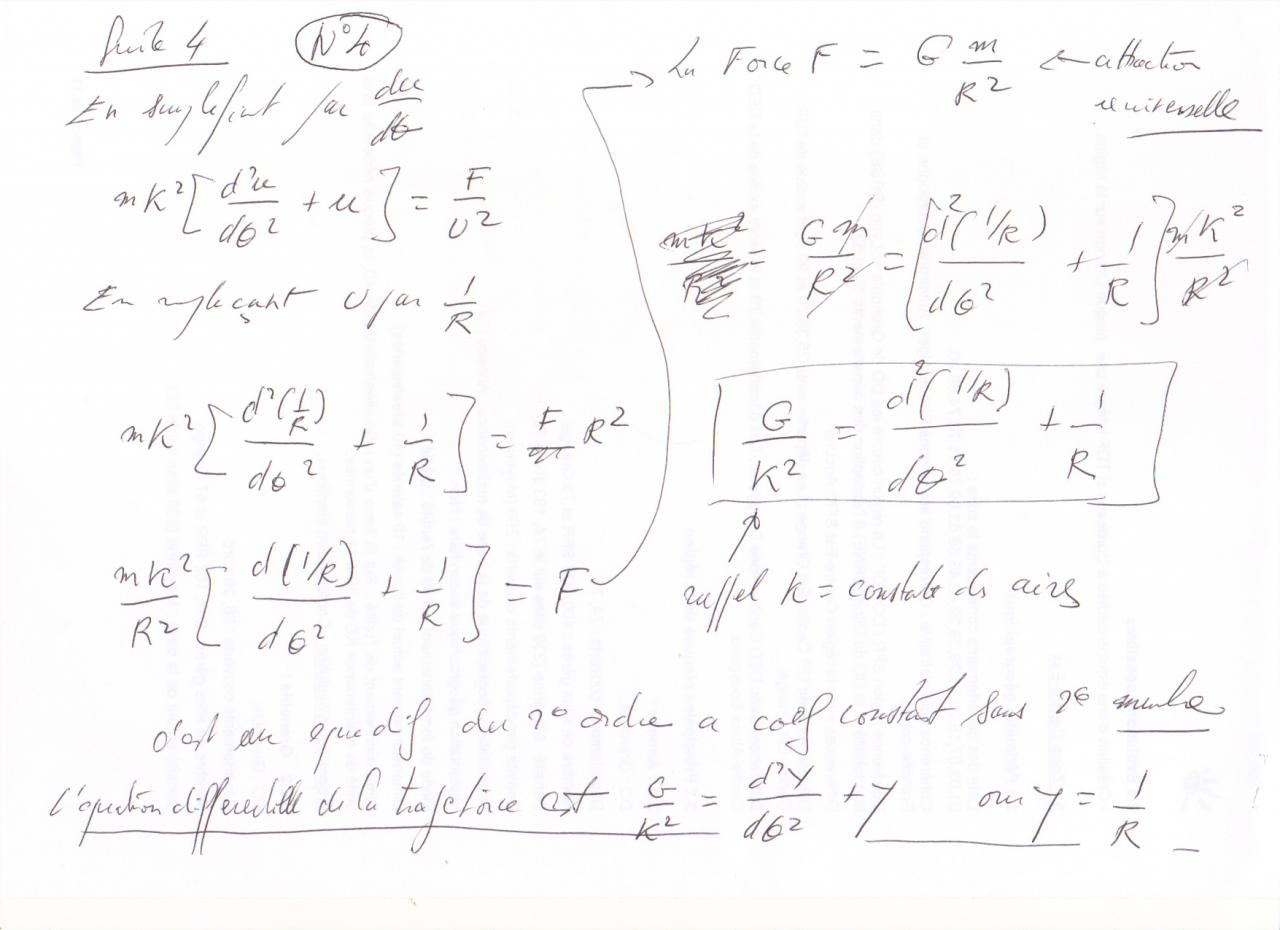 Suite 4 N°4
En simplifiant par du/dθ
mK² [ d²u/dθ² + u ] = F/U²
En remplaçant U par 1/R
mK² [ d²(1/R)/dθ² + 1/R ] = F R²
mK²/R² [ d(1/R)/dθ² + 1/R ] = F
La Force F = G m/R² ← attraction
universelle
= Gm/R² = [ d²(1/R)/dθ² + 1/R ] mK²/R²
G/K² = d²(1/R)/dθ² + 1/R
rappel K = constate des aires
c'est un equ dif du 2e ordre a coef constant sans 2e membre
l'équation differentielle de la trajectoire est G/K² = d²Y/dθ² + Y ou Y = 1/R